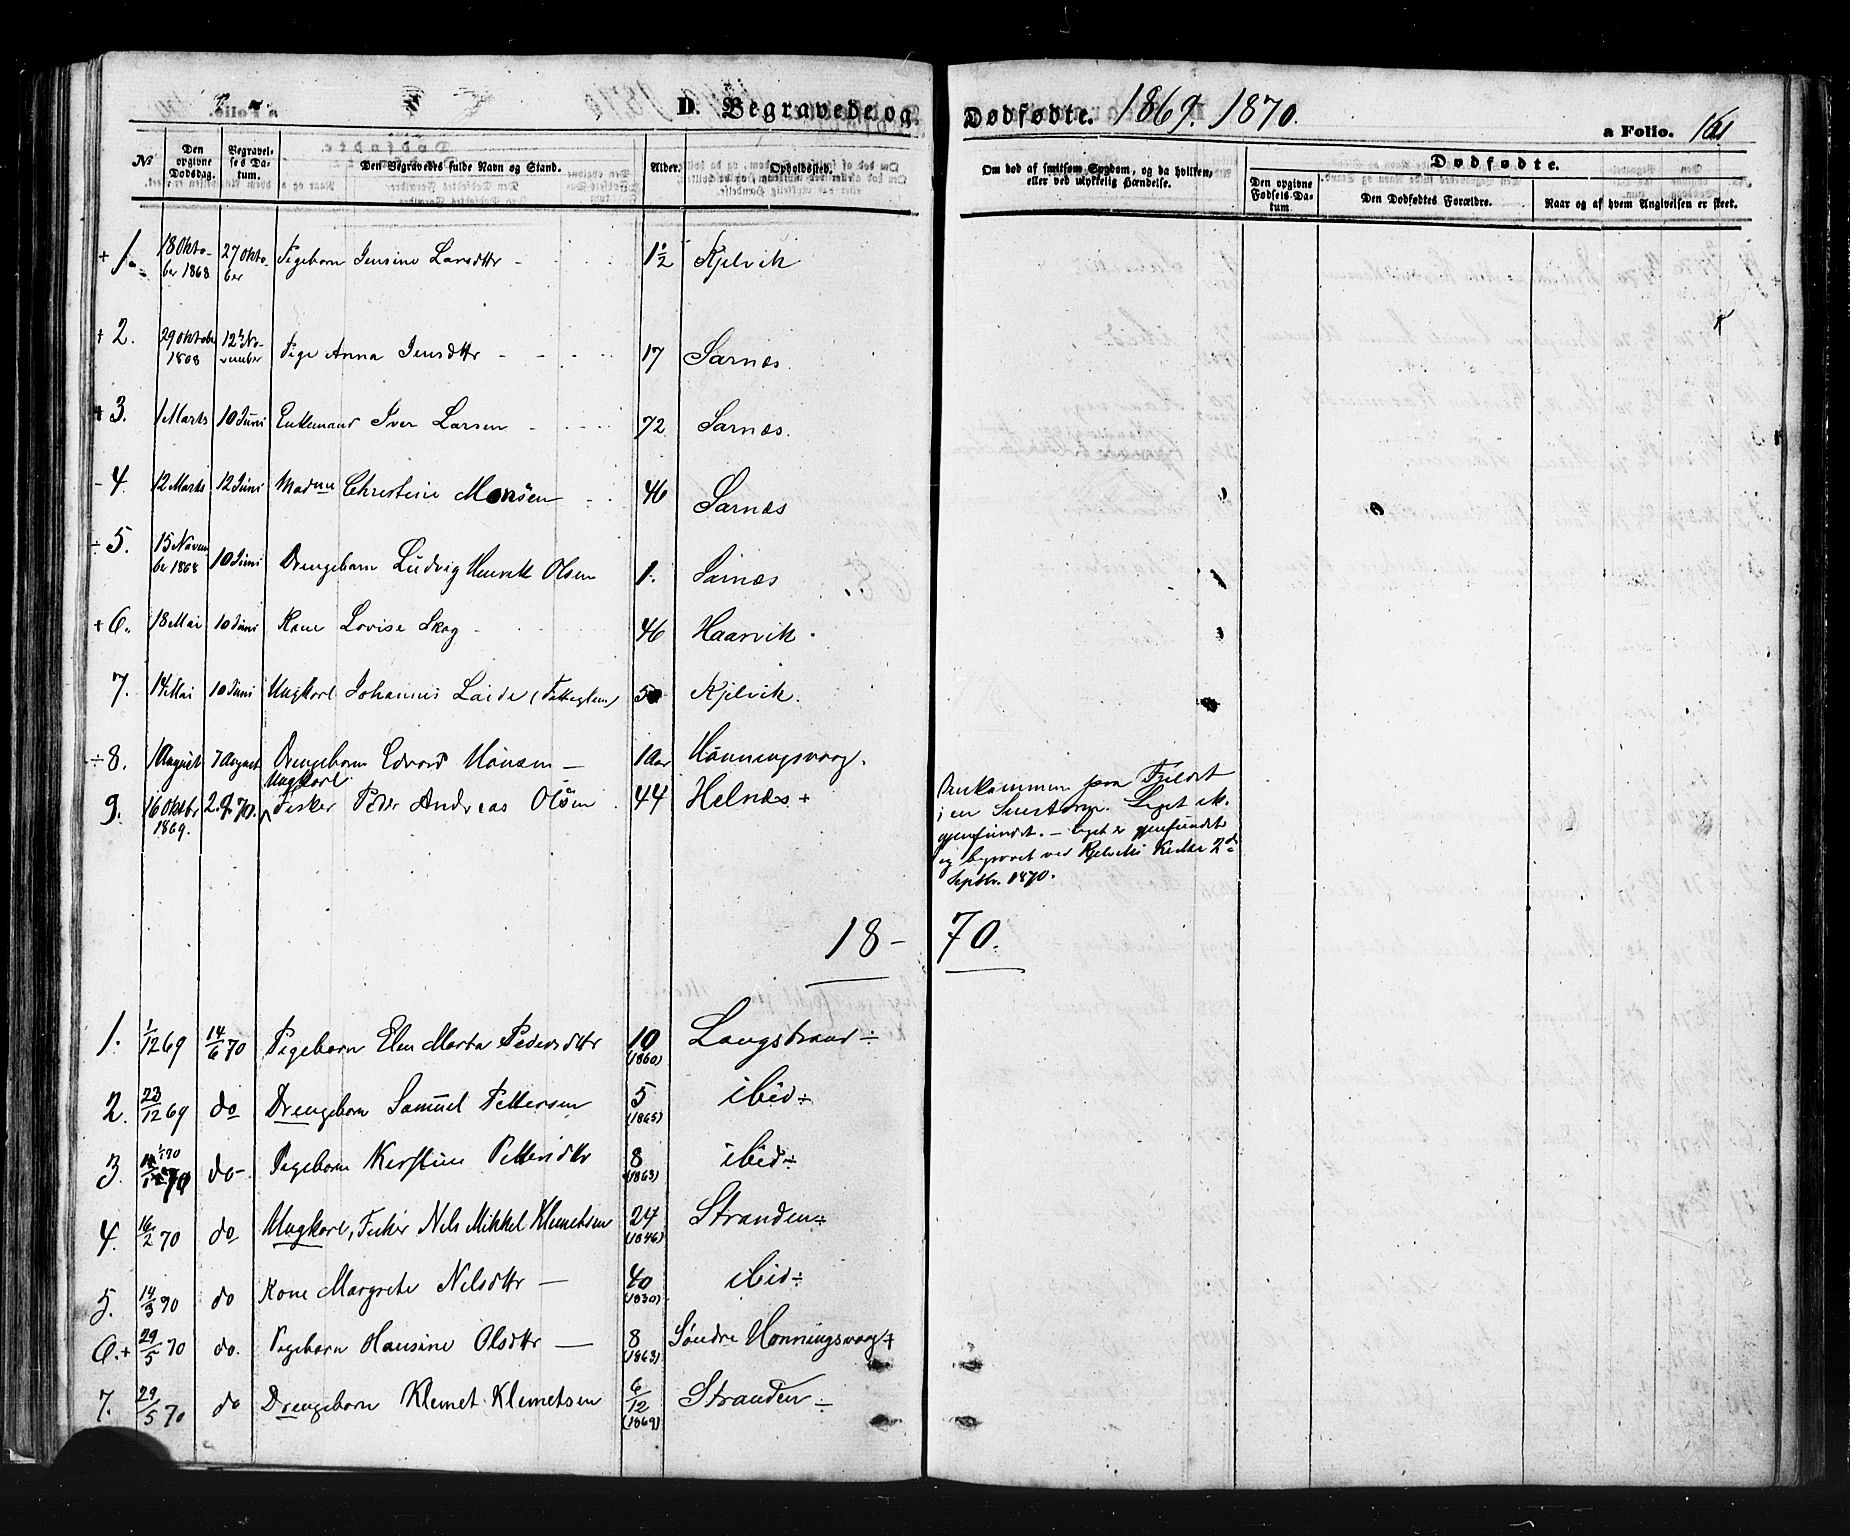 D. Begravede og Dødfødte. 1869. 1870. a Folio. 161
No
Den opgivne Dødsdag.
Begravelses Datum.
Den Begravedes fulde Navn og Stand.
Alder.
Opholdssted.
Om død af smitsom Sygdom, og da hvilken, eller ved ulykkelig Hændelse.
Dødfødte.
Den opgivne Fødsels Datum
Den Dødfødtes Forældre.
Naar og af hvem Angivelsen er skeet.
+ 1. 18 Oktober 1868 27 Oktober Pigebarn Jensine Larsdttr - 1 1/2 Kjelvik
+ 2. 29 Oktober 1868 12te November Pige Anna Jensdttr - - - - 17 Sarnæs.
+ 3. 1 Marts 10 Juni Enkemand Iver Larsen - - - - 72 Sarnæs.
- 4. 12 Marts 12 Juni Madme Christine Monsen - - 46 Sarnæs
÷ 5. 15 November 1868 10 Juni Drengebarn Ludvig Henrik Olsen 1. Sarnæs
+ 6. 18 Mai 10 Juni Kone Lovise Skog - 46 Haarvik.
7. 14 Mai 10 Juni Ungkarl Johannes (Fatteglem) 50 Kjelvik.
÷ 8. 1 August 7 August Drengebarn Edvard Hansen - 1 Aar Honningsvaag.
9. 16 Oktbr 1869. 2.9.70. Ungkarl Fisker Peder Andreas Olsen 44 Helnæs +
Omkommen paa Fjeldet
i en Snestorm. Liget ik.
gjenfundet. - Liget er gjenfundet
og begravet ved Kjelviks Kirke 2de
Septbr. 1870.
18 - 70.
1. 1/12 69 14/6 70 Pigebarn Elen Marta Pedersdttr 10 (1860) Langstrand ÷
2. 23/12 69 do Drengebarn Samuel Pettersen 5 (1865) ibid ÷
3. do - Pigebarn Kerstine Pettersdttr 8 (1863) ibid ÷
4. 16/2 70 do Ungkarl, Fisker Nils Mikkel Klemetsen 24 (1846) Stranden ÷
5. 14/3 70 do Kone Margrete Nilsdttr - 40 (1830) ibid ÷
6. + 29/5 70 do. Pigebarn Hansine Olsdttr - 8 (1863) Søndre Honningsvaag +
7. 29/5 70 do Drengebarn Klemet Klemetsen 6/12 (1869) Stranden ÷